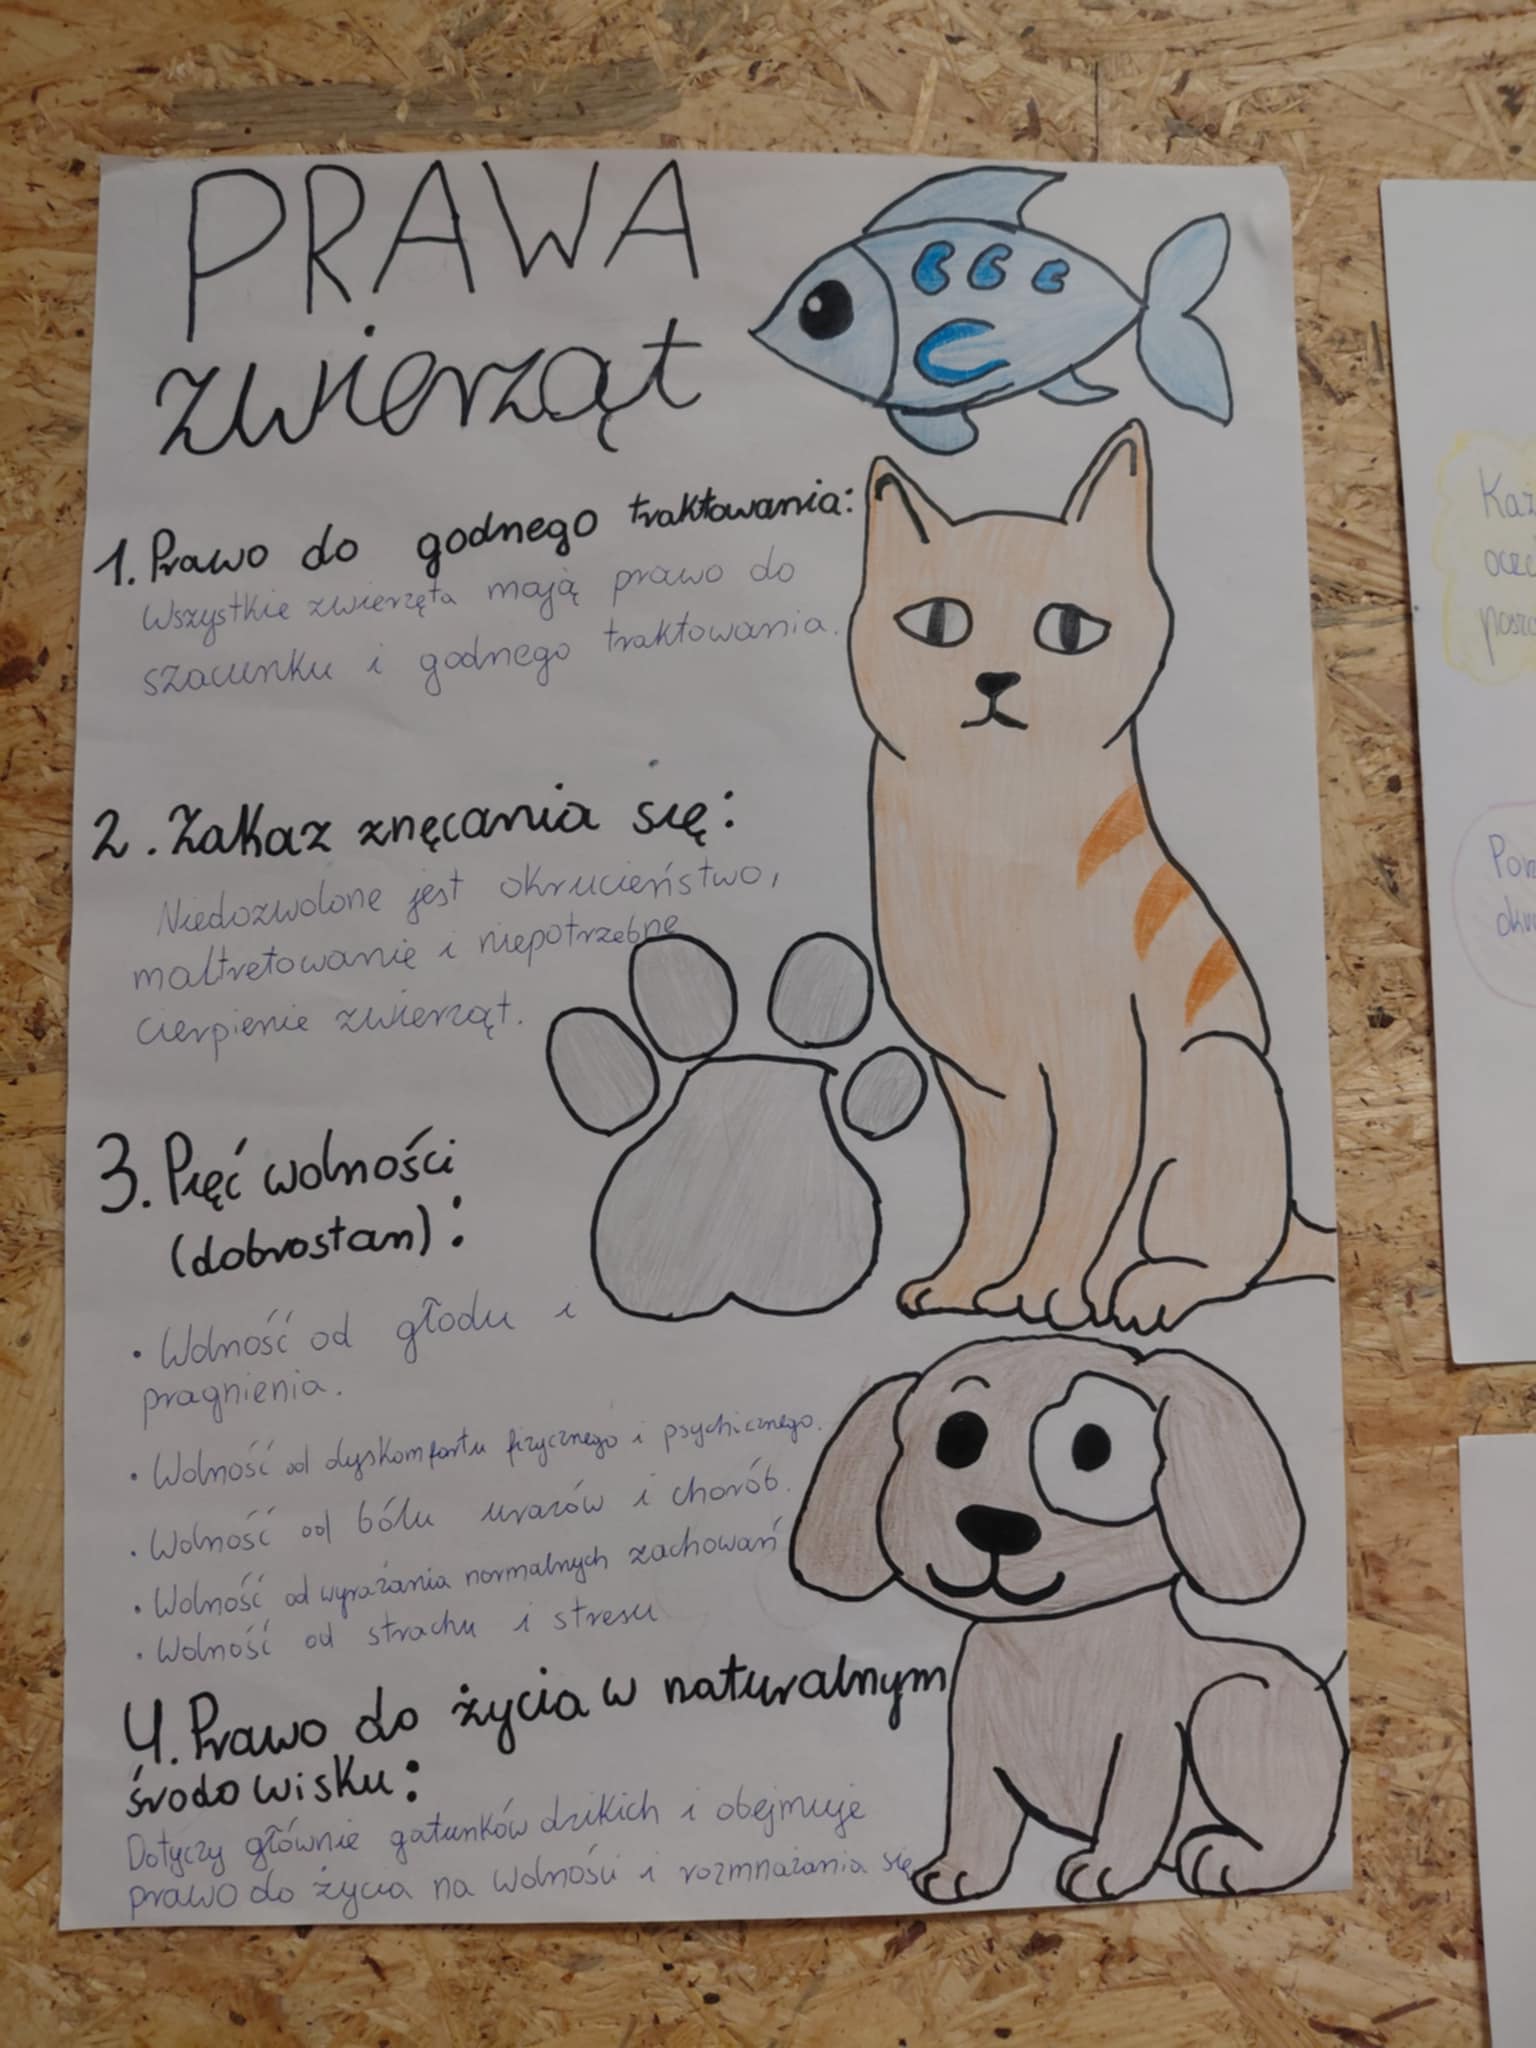 PRAWA
zwierząt
1. Prawo do godnego traktowania:
Wszystkie zwierzęta mają prawo do
szacunku i godnego traktowania.
2. Zakaz znęcania się:
Niedozwolone jest okrucieństwo,
maltretowanie i niepotrzebne
cierpienie zwierząt.
3. Pięć wolności
(dobrostan):
• Wolność od głodu i
pragnienia.
• Wolność od dyskomfortu fizycznego i psychicznego.
• Wolność od bólu urazów i chorób.
• Wolność od wyrażania normalnych zachowań
• Wolność od strachu i stresu
4. Prawo do życia w naturalnym
środowisku:
Dotyczy głównie gatunków dzikich i obejmuje
prawo do życia na wolności i rozmnażania się